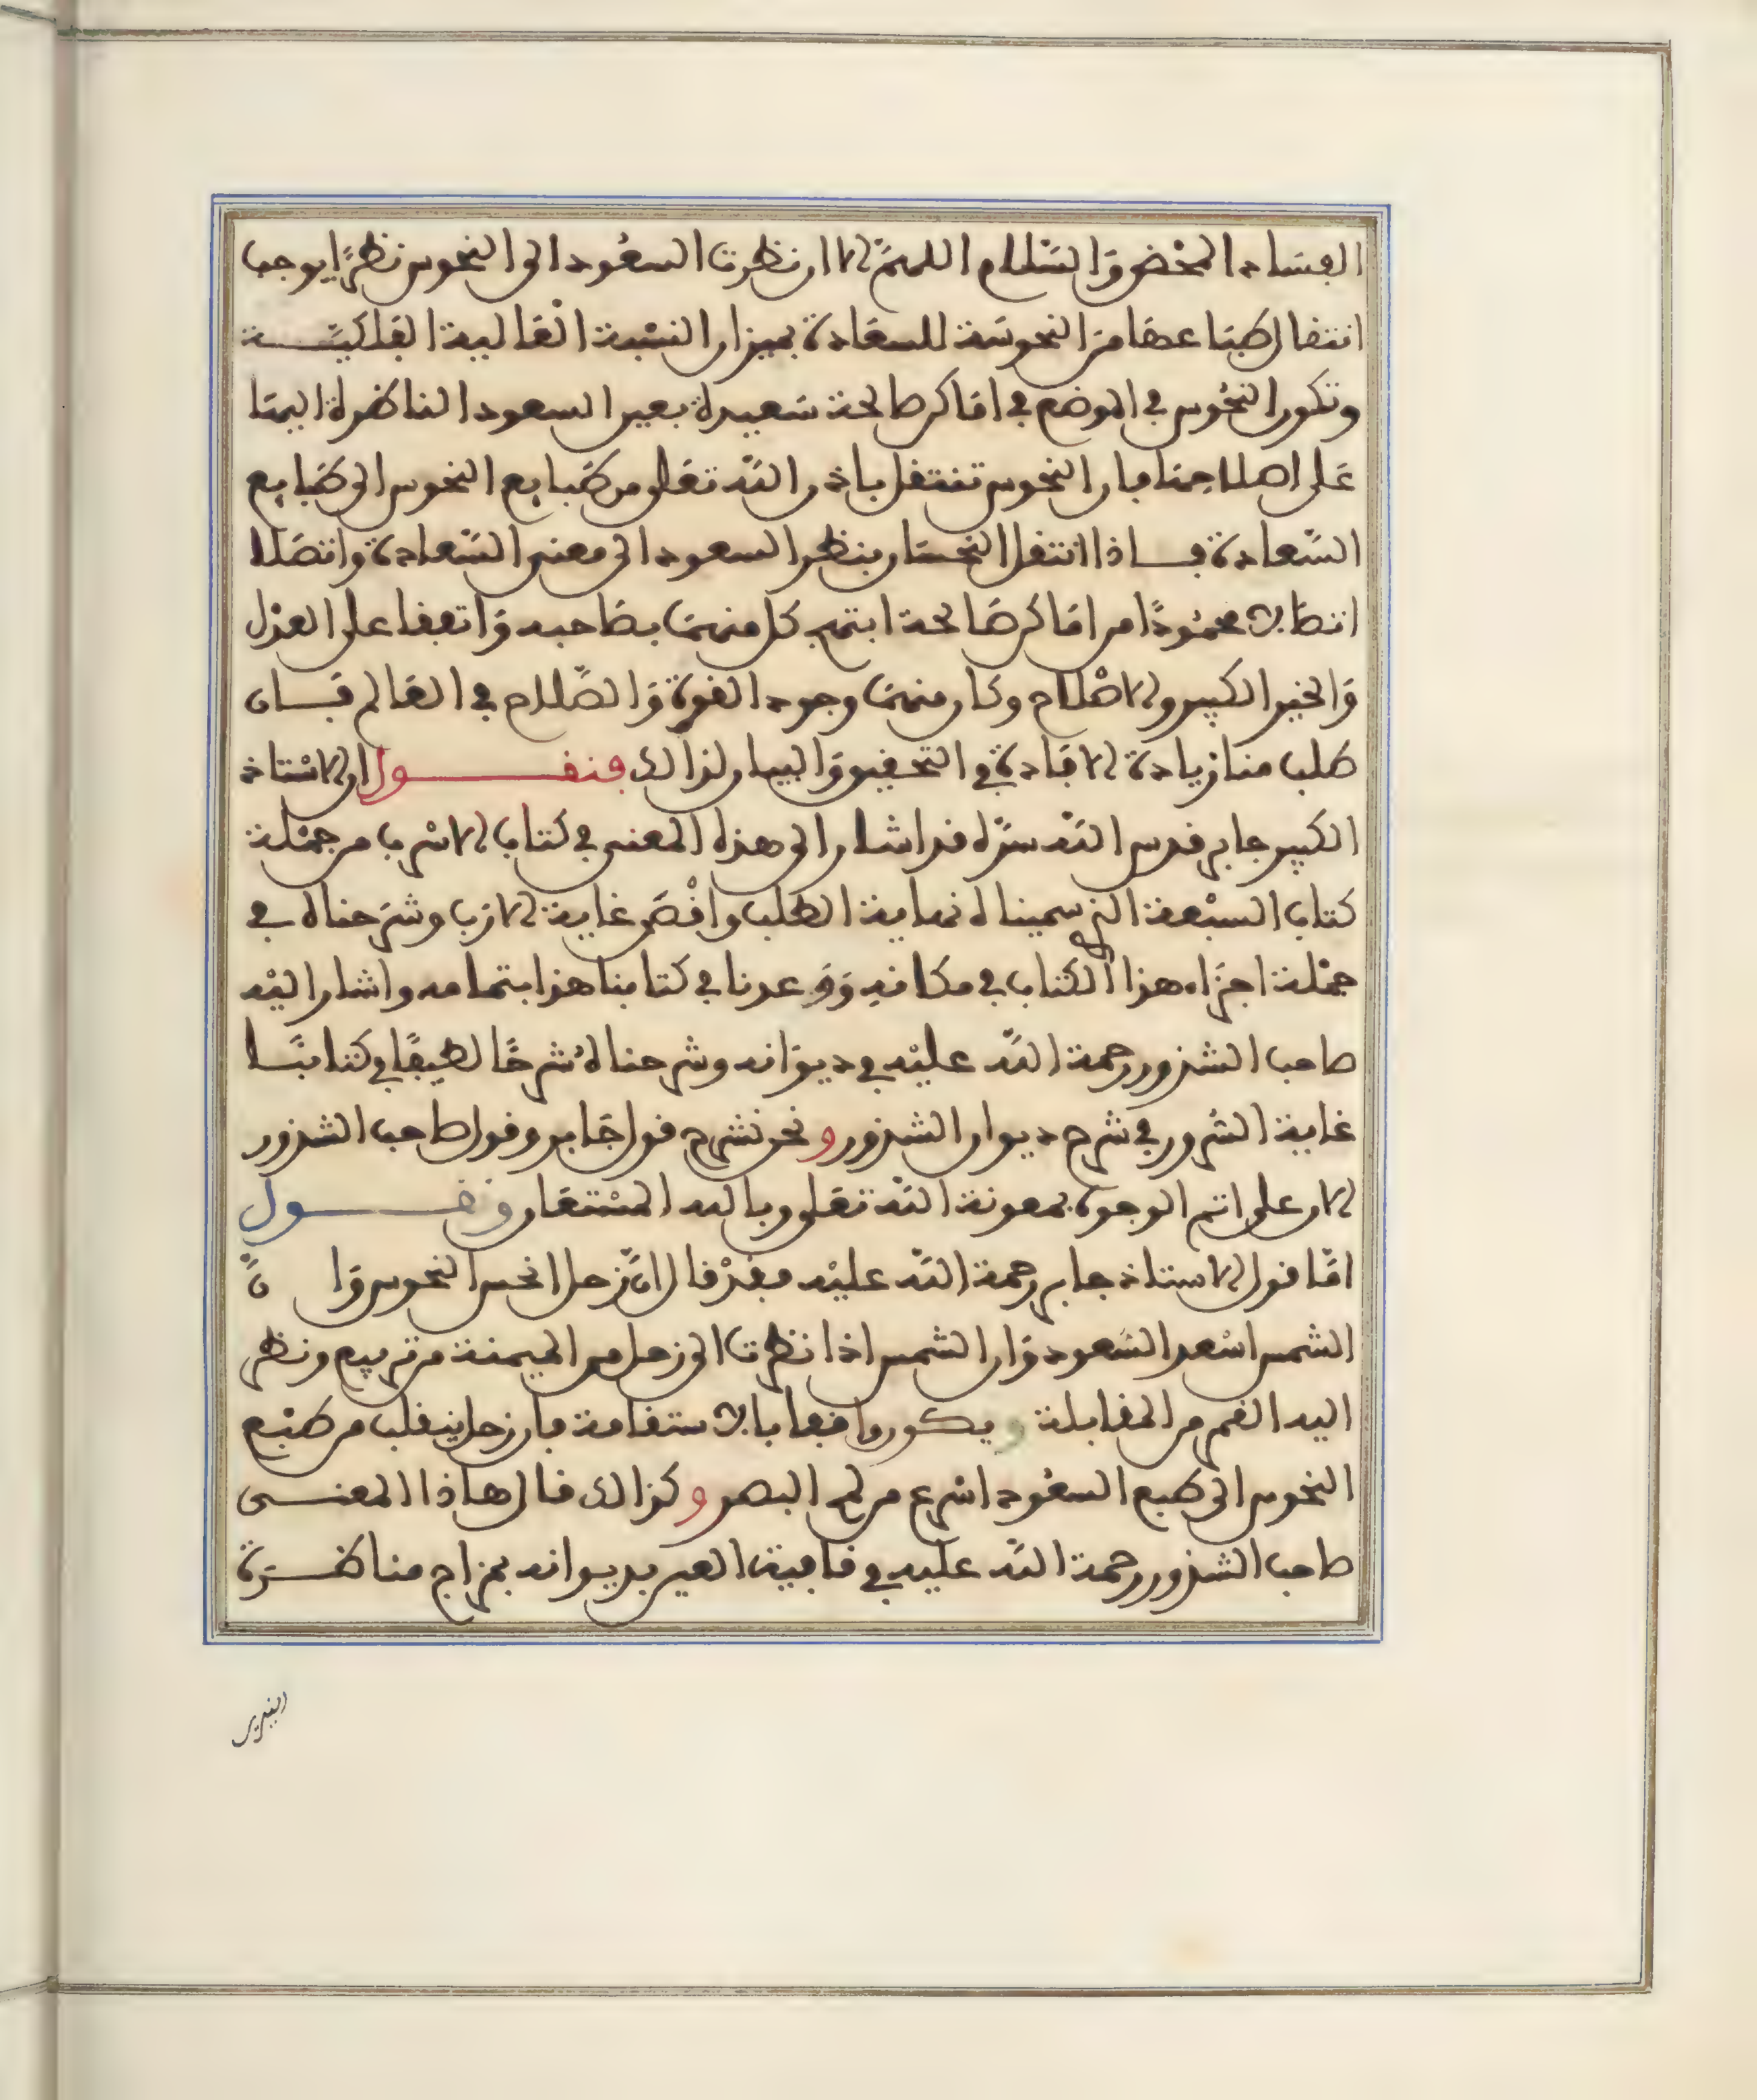 الفساد المحض والسلام اللهم الا ان نظرت السعود الى النحوس نظرًا يوجب
انتقال طباعها من النحوسة للسعادة بميزان النسبة العالية الفلكية
وتكون النحوس في الموضع في اماكن صالحة سعيدة بعين السعود الناظرة اليها
على اصلاحها فان النحوس تنتقل باذن الله تعلى من طبايع النحوس الى طبايع
السعادة فاذا انتقل النحسان بنظر السعود الى معنى السعادة واتصلا
اتصالا محمودًا من اماكن صالحة ابتهج كل منهما بصاحبه واتفقا على العدل
والخير الكبير والاصلاح وكان منهما وجود القوة والصلاح في العالم فان
طلب منا زيادة الافادة في التحقيق والبيان لذالك فنقول ان الاستاذ
الكبير جابر قدس الله سره قد اشار الى هذا المعنى في كتاب الاسرب من جملة
كتاب السبعة الذي سميناه نهاية الطلب واقصى غاية الارب وشرحناه في
جملة اجزاء هذا الكتاب في مكانه ووعدنا في كتابنا هذا بتمامه واشار اليه
صاحب الشذور رحمة الله عليه في ديوانه وشرحناه شرحًا لطيفًا في كتابنا
غاية السرور في شرح ديوان الشذور ونحن نشرح قول جابر وقول صاحب الشذور
الان على اتم الوجوه بمعونة الله تعلى وبالله المستعان ونقول
امّا قول الاستاذ جابر رحمة الله عليه فقد قال ان زحل انحس النحوس وان
الشمس اسعد السعود وان الشمس اذا نظرت الى زحل من الميمنة من تربيع ونظر
اليه القمر من المقابلة ويكون واقفا بالاستقامة فان زحل ينقلب من طبع
النحوس الى طبع السعود اسرع من لمح البصر وكذالك قال هاذا المعنى
صاحب الشذور رحمة الله عليه في قافية العين بديوانه بمزاج مناظرة
النيرين